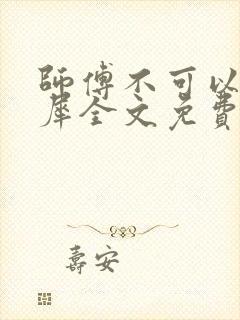 師傅不可以
犀全文免費
壽安